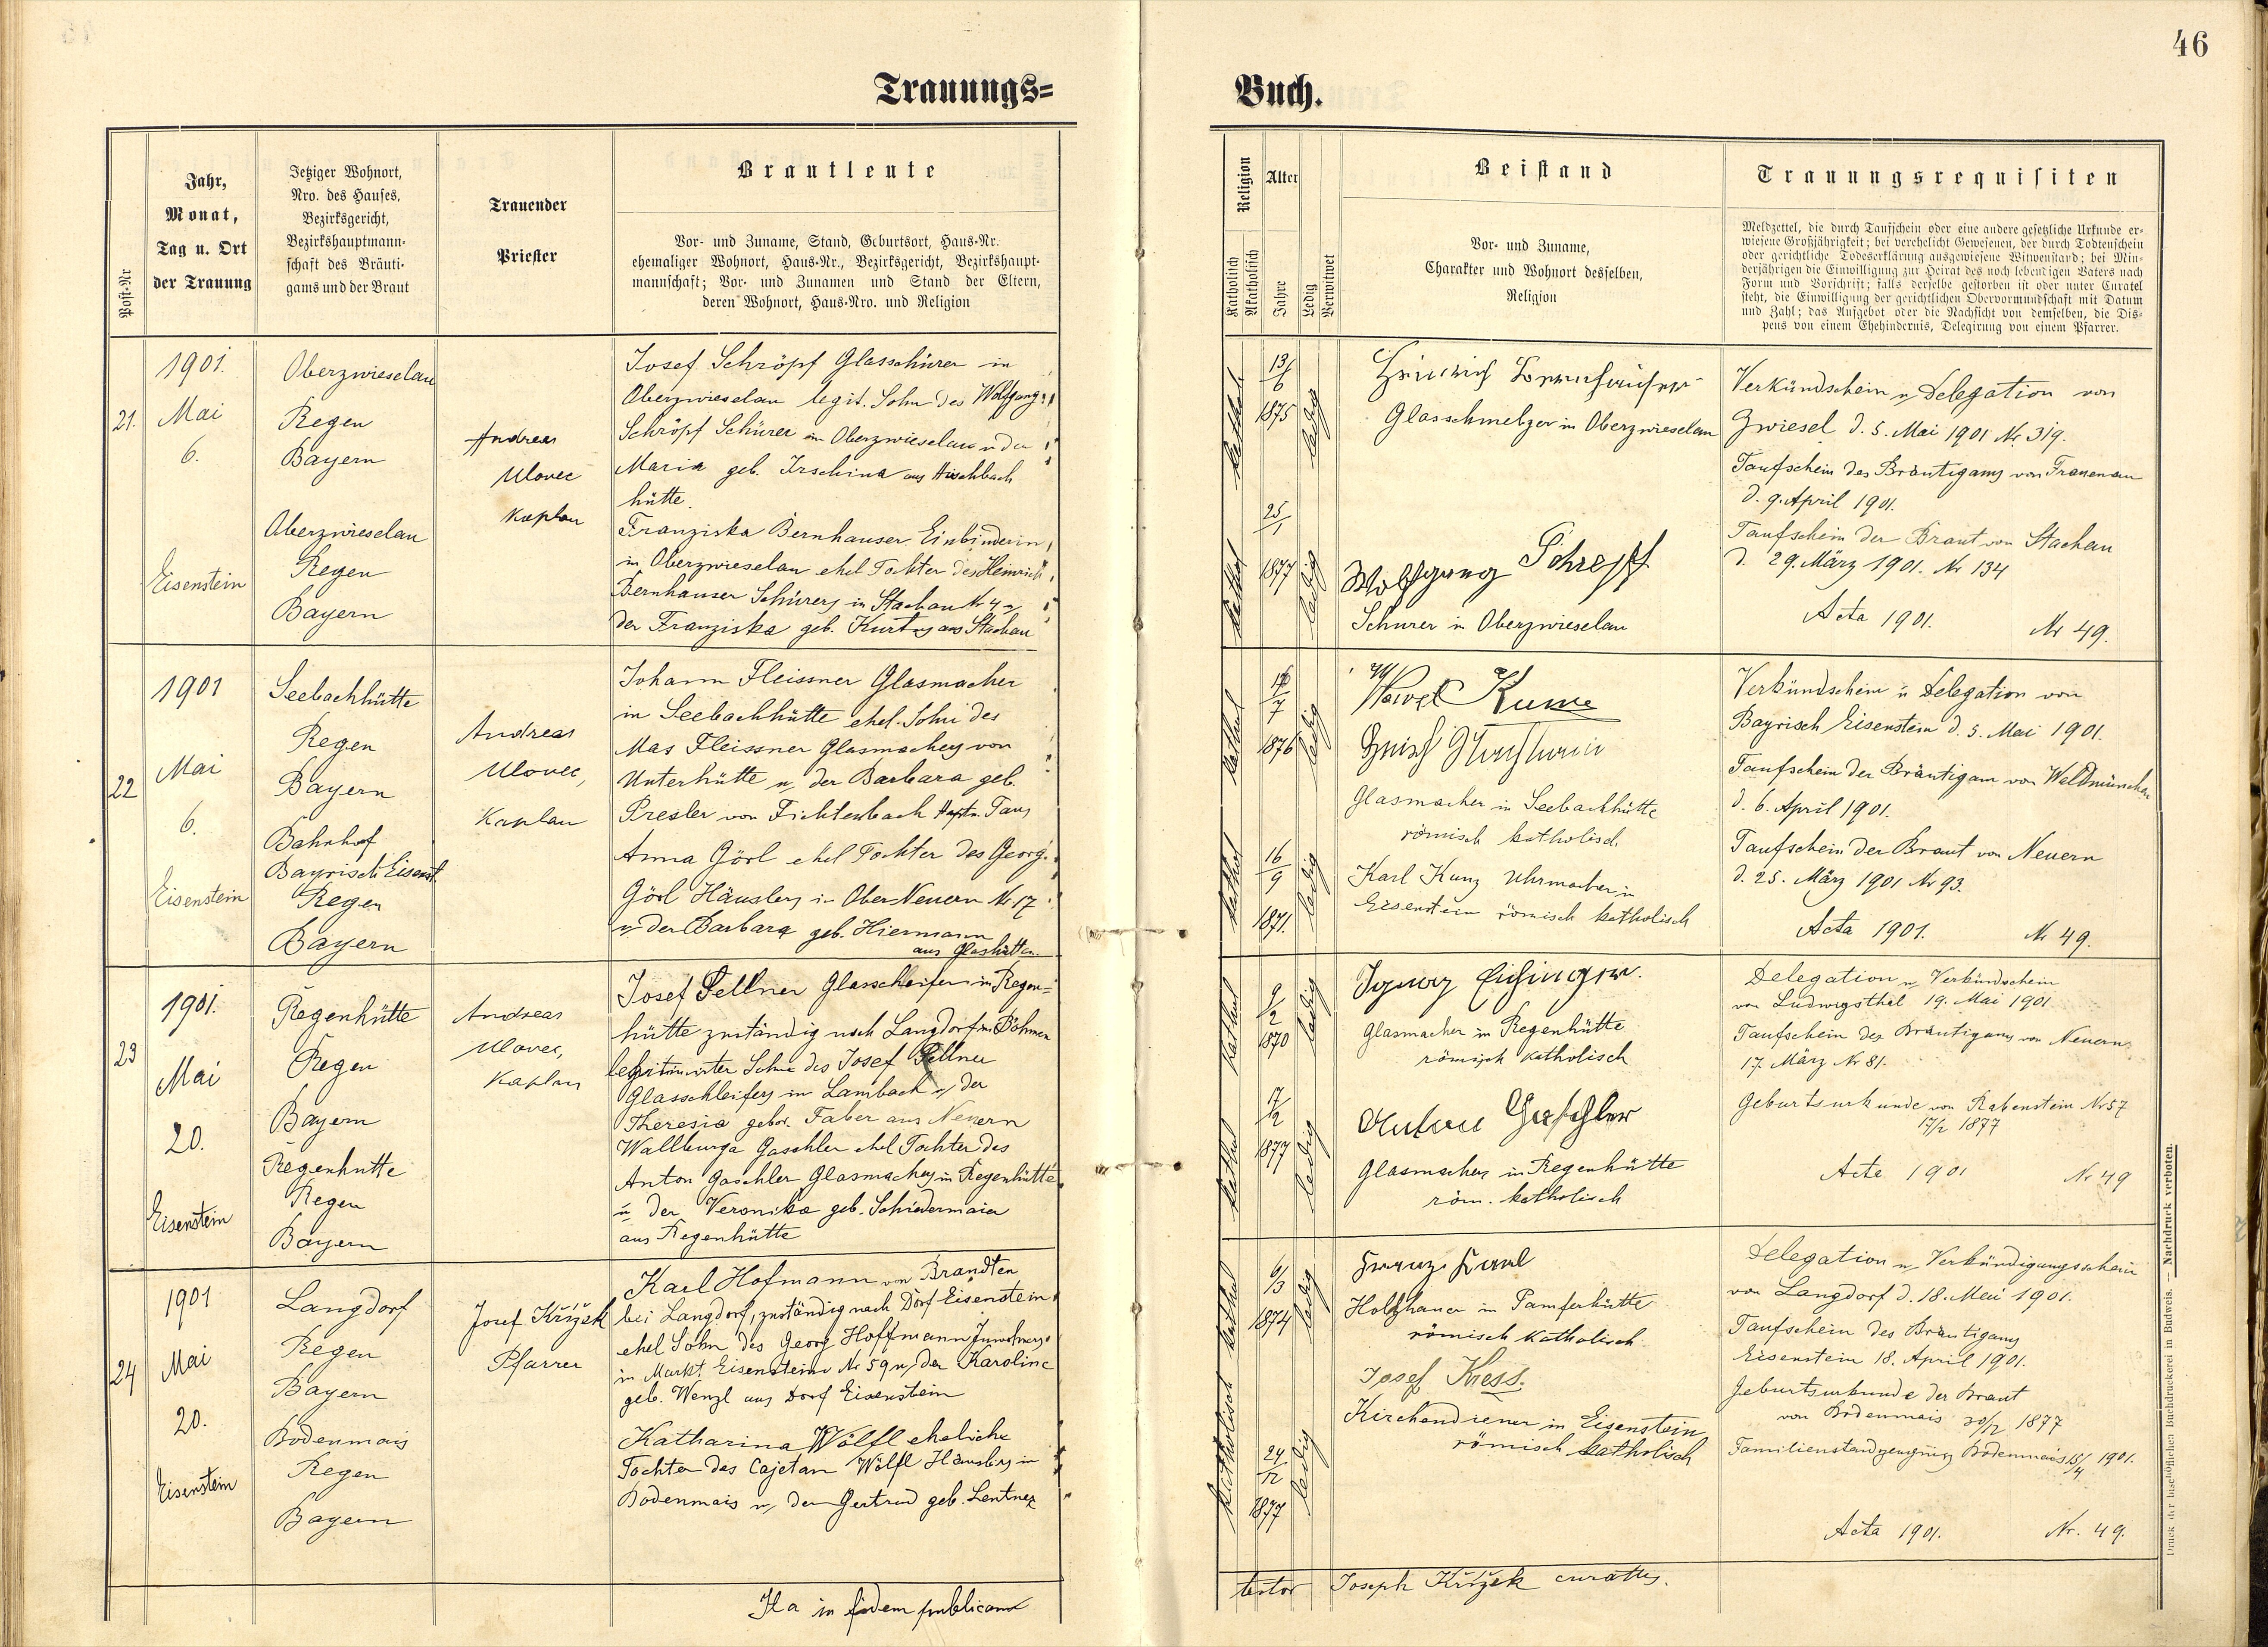 46
Trauungs=
Buch.
Post-Nr
Jahr,
Monat,
Tag u. Ort
der Trauung
Jetziger Wohnort,
Nro. des Hauses,
Bezirksgericht,
Bezirkshauptmann-
schaft des Bräuti-
gams und der Braut
Trauender
Priester
Brautleute
Vor- und Zuname, Stand, Geburtsort, Haus-Nr.
ehemaliger Wohnort, Haus-Nr., Bezirksgericht, Bezirkshaupt-
mannschaft; Vor- und Zunamen und Stand der Eltern,
deren Wohnort, Haus-Nro. und Religion
Religion
Katholisch
Akatholisch
Alter
Jahre
Ledig
Verwitwet
Beistand
Vor- und Zuname,
Charakter und Wohnort desselben,
Religion
Trauungsrequisiten
Meldzettel, die durch Taufschein oder eine andere gesetzliche Urkunde er-
wiesene Großjährigkeit; bei verehelicht Gewesenen, der durch Todtenschein
oder gerichtliche Todeserklärung ausgewiesene Witwenstand; bei Min-
derjährigen die Einwilligung zur Heirat des noch lebendigen Vaters nach
Form und Vorschrift; falls derselbe gestorben ist oder unter Curatel
steht, die Einwilligung der gerichtlichen Obervormundschaft mit Datum
und Zahl; das Aufgebot oder die Nachsicht von demselben, die Dis-
pens von einem Ehehindernis, Delegirung von einem Pfarrer.
21.
1901.
Mai
6.
Eisenstein
Oberzwieselau
Regen
Bayern
Oberzwieselau
Regen
Bayern
Andreas
Ulovec
Kaplan
Josef Schröpf Glasschürer in
Oberzwieselau legit. Sohn des Wolfgang
Schröpf Schürer in Oberzwieselau u der
Maria geb. Irschina aus Hirschbach
hütte.
Franziska Bernhauser Einbinderin
in Oberzwieselau ehel Tochter des Heinrich
Bernhauser Schürers in Stachau Nr 4 u
der Franziska geb. Kurtz aus Stachau
kathol
13/6
1875
ledig
kathol
25/1
1877
ledig
Heinrich
Glasschmelzer in Oberzwieselau
Wolfgang Schrepf
Schürer in Oberzwieselau
Verkündschein u Delegation von
Zwiesel d. 5. Mai 1901 Nr 319.
Taufschein des Bräutigams von Frauenau
d. 9. April 1901.
Taufschein der Braut von Stachau
d. 29. März 1901. Nr 134
Acta 1901. Nr 49.
22
1901
Mai
6.
Eisenstein
Seebachhütte
Regen
Bayern
Bahnhof
Bayrisch Eisenst.
Regen
Bayern
Andreas
Ulovec,
Kaplan
Johann Fleissner Glasmacher
in Seebachhütte ehel. Sohn des
Max Fleissner Glasmachers von
Unterhütte u der Barbara geb.
Presler von Fichtenbach Hptm. Taus
Anna Görl ehel Tochter des Georg
Görl Häuslers in Ober-Neuern Nr 17
u der Barbara geb. Hiermann
aus Glashütten
kathol
7
1876
ledig
kathol
16/9
1871.
ledig
Glasmacher in Seebachhütte
römisch katholisch.
Karl Kunz Uhrmacher in
Eisenstein römisch katholisch
Verkündschein u Delegation von
Bayrisch Eisenstein d. 5. Mai 1901.
Taufschein der Bräutigam von Waldmünchen
d. 6. April 1901.
Taufschein der Braut von Neuern
d. 25. März 1901 Nr 93.
Acta 1901. Nr 49.
23
1901.
Mai
20.
Eisenstein
Regenhütte
Regen
Bayern
Regenhütte
Regen
Bayern
Andreas
Ulovec,
Kaplan
Josef Fellner Glasschleifer in Regen=
hütte zuständig nach Langdorf in Böhmen
legitimirter Sohn des Josef Fellner
Glasschleifers in Lambach u der
Theresia gebor. Faber aus Neuern
Wallburga Gaschler ehel Tochter des
Anton Gaschler Glasmachers in Regenhütte
u der Veronika geb. Schiedermaier
aus Regenhütte
kathol
9/2
1870
ledig
kathol
17/2
1877
ledig
Ignaz
Glasmacher in Regenhütte
römisch katholisch
Anton Gaschler
Glasmacher in Regenhütte
röm. katholisch
Delegation u Verkündschein
von Ludwigsthal 19. Mai 1901
Taufschein des Bräutigams von Neuern
17. März Nr 81.
Geburtsurkunde von Rabenstein Nr 57
17/2 1877
Acta 1901 Nr 49
24
1901
Mai
20.
Eisenstein
Langdorf
Regen
Bayern
Bodenmais
Regen
Bayern
Josef Křížek
Pfarrer
Karl Hofmann von Brandten
bei Langdorf, zuständig nach Dorf Eisenstein
ehel Sohn des Georg Hoffmann Inwohners
in Markt Eisenstein Nr 59 u der Karoline
geb. Wenzl aus Dorf Eisenstein
Katharina Wölfl eheliche
Tochter des Cajetan Wölfl Häuslers in
Bodenmais u der Gertrud geb. Lentner
kathol
6/3
1874
ledig
katholisch
24/12
1877
ledig
Franz
Holzhauer in Pamferhütte
römisch katholisch
Josef Kress.
Kirchendiener in Eisenstein
römisch katholisch
Delegation u Verkündigungsschein
von Langdorf d. 18. Mai 1901.
Taufschein des Bräutigams
Eisenstein 18. April 1901.
Geburtsurkunde der Braut
von Bodenmais 1877
Bodenmais 15/4 1901.
Acta 1901. Nr. 49.
Ita in fidem publicam
testor Joseph Křížek curatus.
Druck der bischöflichen Buchdruckerei in Budweis. — Nachdruck verboten.